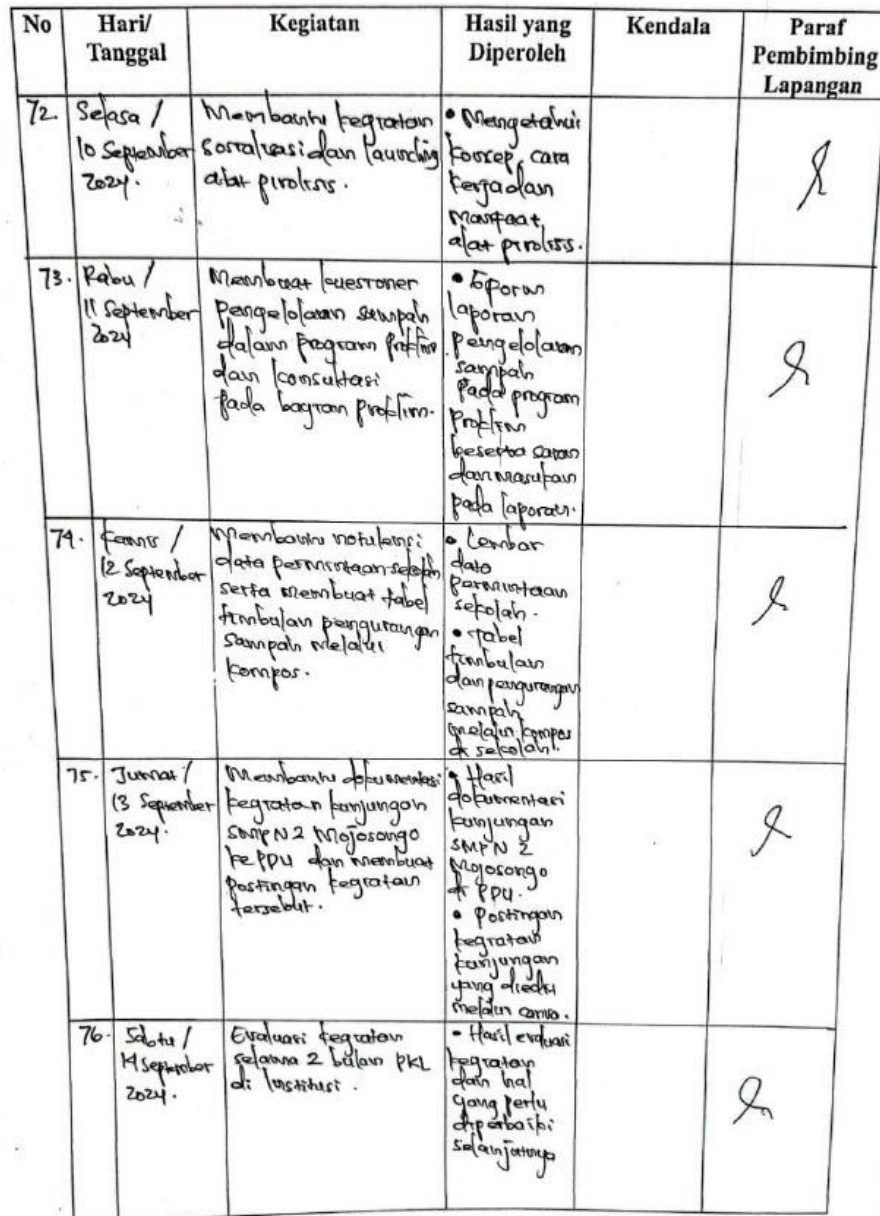 No
Hari/
Tanggal
Kegiatan
Hasil yang
Diperoleh
Kendala
Paraf
Pembimbing
Lapangan
72.
Selasa /
10 September
2024.
Membantu kegiatan
sosialisasi dan launching
alat pirolisis.
• Mengetahui
konsep, cara
kerja dan
manfaat
alat pirolisis.
73.
Rabu /
11 September
2024
Membuat kuesioner
pengelolaan sampah
dalam program proklim
dan konsultasi
pada bagian proklim.
•
laporan
pengelolaan
sampah
pada program
proklim
beserta saran
dan masukan
pada laporan.
74.
Kamis /
12 September
2024
Membantu notulensi
data permintaan sekolah
serta membuat tabel
timbulan pengurangan
sampah melalui
kompos.
• Lembar
data
permintaan
sekolah.
• Tabel
timbulan
dan pengurangan
sampah
melalui kompos
di sekolah.
75.
Jumat /
13 September
2024.
Membantu dokumentasi
kegiatan kunjungan
SMPN 2 Mojosongo
ke PDU dan membuat
postingan kegiatan
tersebut.
• Hasil
dokumentasi
kunjungan
SMPN 2
Mojosongo
di PDU.
• Postingan
kegiatan
kunjungan
yang diedit
melalui canva.
76.
Sabtu /
14 September
2024.
Evaluasi kegiatan
selama 2 bulan PKL
di Institusi.
• Hasil evaluasi
kegiatan
dan hal
yang perlu
diperbaiki
selanjutnya